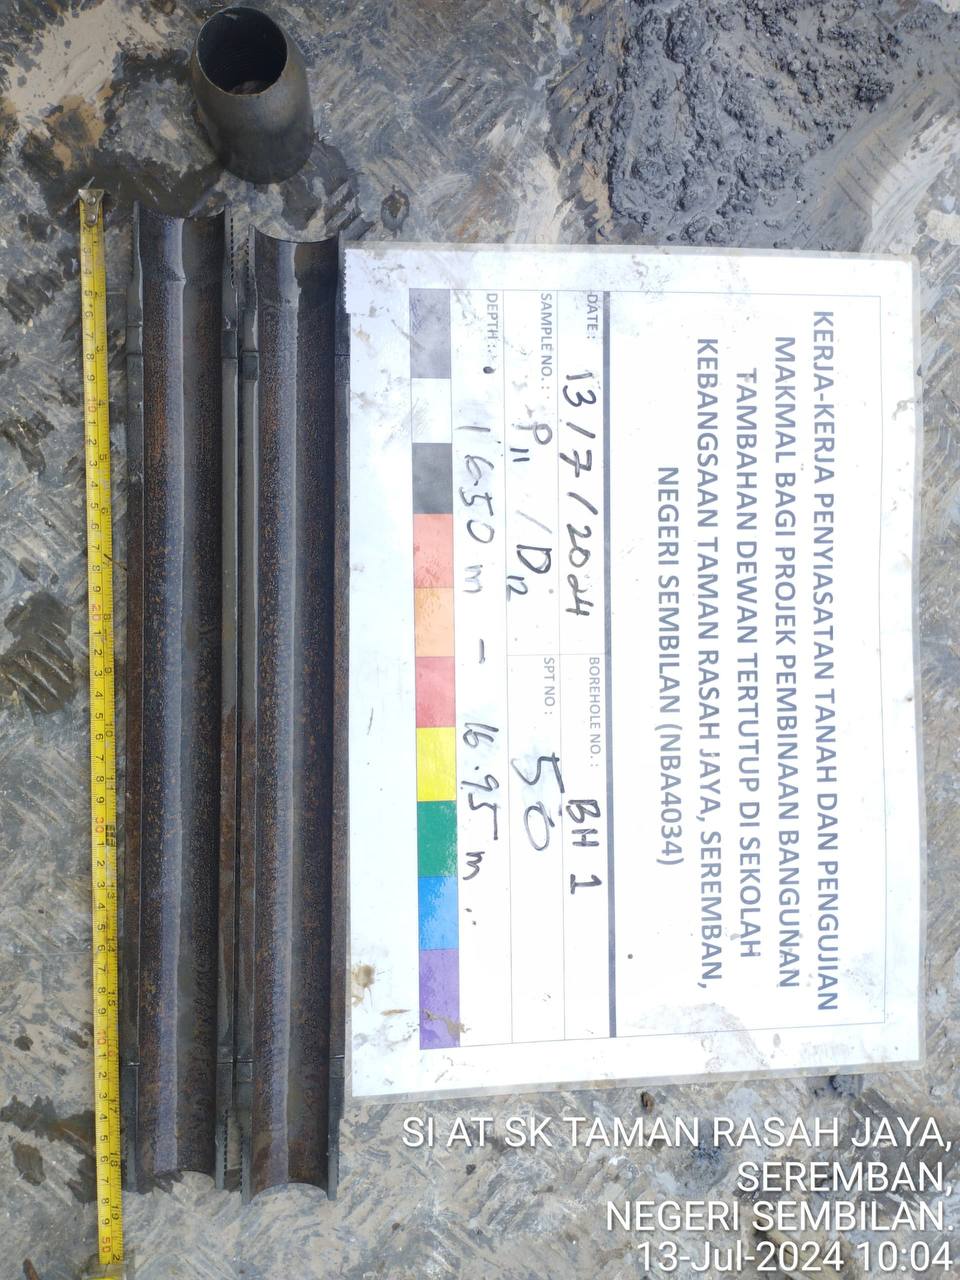 KERJA-KERJA PENYIASATAN TANAH DAN PENGUJIAN
MAKMAL BAGI PROJEK PEMBINAAN BANGUNAN
TAMBAHAN DEWAN TERTUTUP DI SEKOLAH
KEBANGSAAN TAMAN RASAH JAYA, SEREMBAN,
NEGERI SEMBILAN (NBA4034)
DATE: 13/7/2024 BOREHOLE NO.: BH 1
SAMPLE NO.: P11 /D12 SPT NO: 50
DEPTH: 16.50 m - 16.95 m
SI AT SK TAMAN RASAH JAYA,
SEREMBAN,
NEGERI SEMBILAN.
13-Jul-2024 10:04